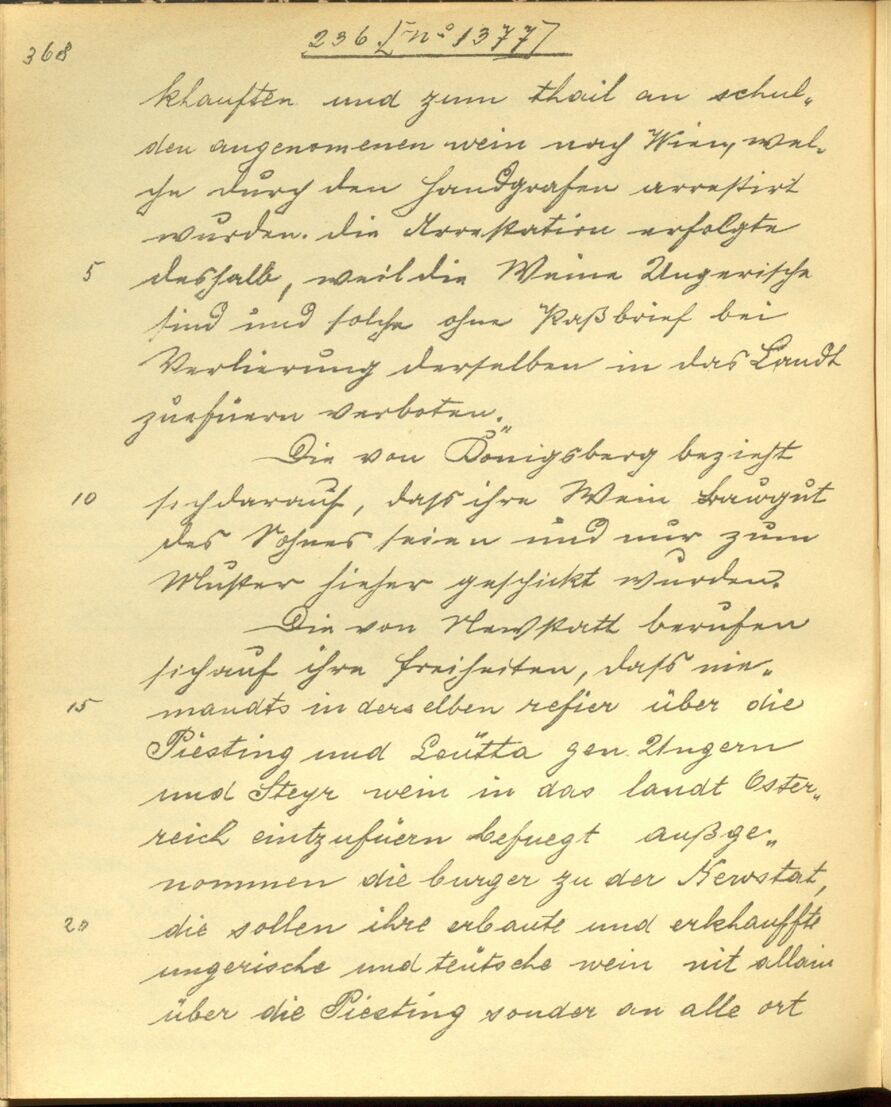 368
236. [No 1377]
khauften und zum thail an schul„
den angenomenen wein nach Wien, wel„
che durch den Handgrafen arrestirt
wurden. Die Arrestation erfolgte
5 deshalb, weil die Weine Ungerische
sind und solche ohne Paßbrief bei
Verlierung derselben in das Landt
zuefüern verboten.
Die von Königsberg bezieht
10 sich darauf, dass ihre Wein bawgut
des Sohnes seien und nur zum
Muster hieher geschickt wurden.
Die von Newstatt berufen
sich auf ihre Freiheiten, dass nie„
15 mandts in derselben refier über die
Piesting und Leütta gen Ungern
und Steyr wein in das landt Oster„
reich eintzufüern befuegt außge„
nommen die burger zu der Newstat,
20 die sollen ihre erbaute und erkhauffte
ungerische und teütsche wein nit allain
über die Piesting sonder an alle ort